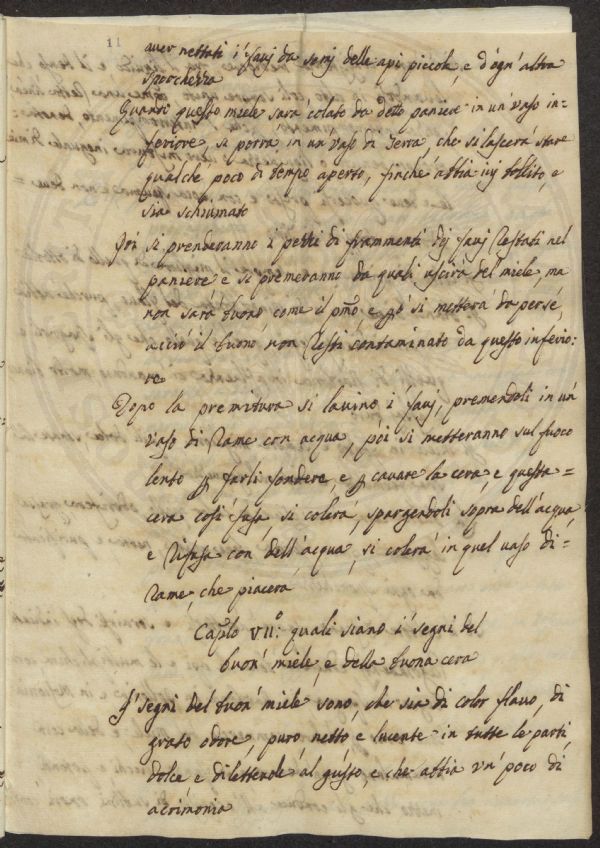 11
aver nettati i' favj da semj delle api piccole, e d'ogn' altra
sporchezza
Quando questo miele sarà colato da detto paniere in un' vaso in=
feriore, si porrà in un' vaso di Terra, che si lascerà stare
qualche poco di tempo aperto, finche abbia ivj bollito, e
sia schiumato
Poi si prenderanno i pezzi di frammenti dej favj restati nel
paniere e si premeranno da quali uscirà del miele, ma
non sarà buono come il pmo e pò si metterà da persé,
acciò il buono non resti contaminato da questo inferio:
re
Dopo la premitura si lavino i favj, premendoli in un'
vaso di Rame con acqua, poi si metteranno sul fuoco
lento p farli fondere, e p cavare la cera, e questa=
cera cosi fusa, si colerà, spargendoli sopra dell'acqua
e rifusa con dell' acqua, si colerà in quel vaso di=
Rame, che piacerà
Caplo VII:o quali siano i' segni del
buon' miele, e della buona cera
I' segni del buon' miele sono, che sia di color flavo, di
grato odore, puro, netto e lucente in tutte le parti,
dolce e dilettevole al gusto, e che abbia un' poco di
acrimonia